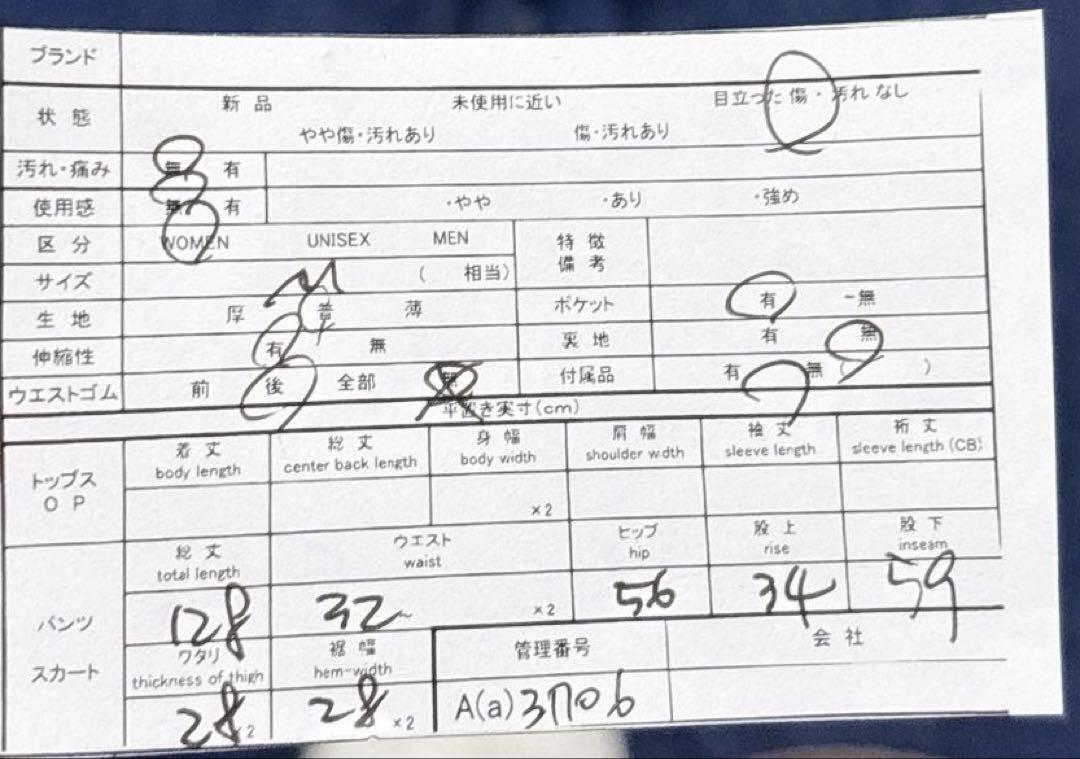 ブランド
状態 新品 未使用に近い 目立った傷・汚れなし
やや傷・汚れあり 傷・汚れあり
汚れ・痛み 無 有
使用感 無 有 ・やや ・あり ・強め
区分 WOMEN UNISEX MEN 特徴
備考
サイズ M ( 相当)
生地 厚 普 薄 ポケット 有 -無
伸縮性 有 無 裏地 有 無
ウエストゴム 前 後 全部 無 付属品 有 無 ( )
平置き実寸(cm)
トップス
OP
着丈 総丈 身幅 肩幅 袖丈 裄丈
body length center back length body width shoulder width sleeve length sleeve length (CB)
×2
パンツ
スカート
総丈 ウエスト ヒップ 股上 股下
total length waist hip rise inseam
128 32~ ×2 56 34 59
ワタリ 裾幅 管理番号 会社
thickness of thigh hem-width
28 ×2 28 ×2 A(a)3706